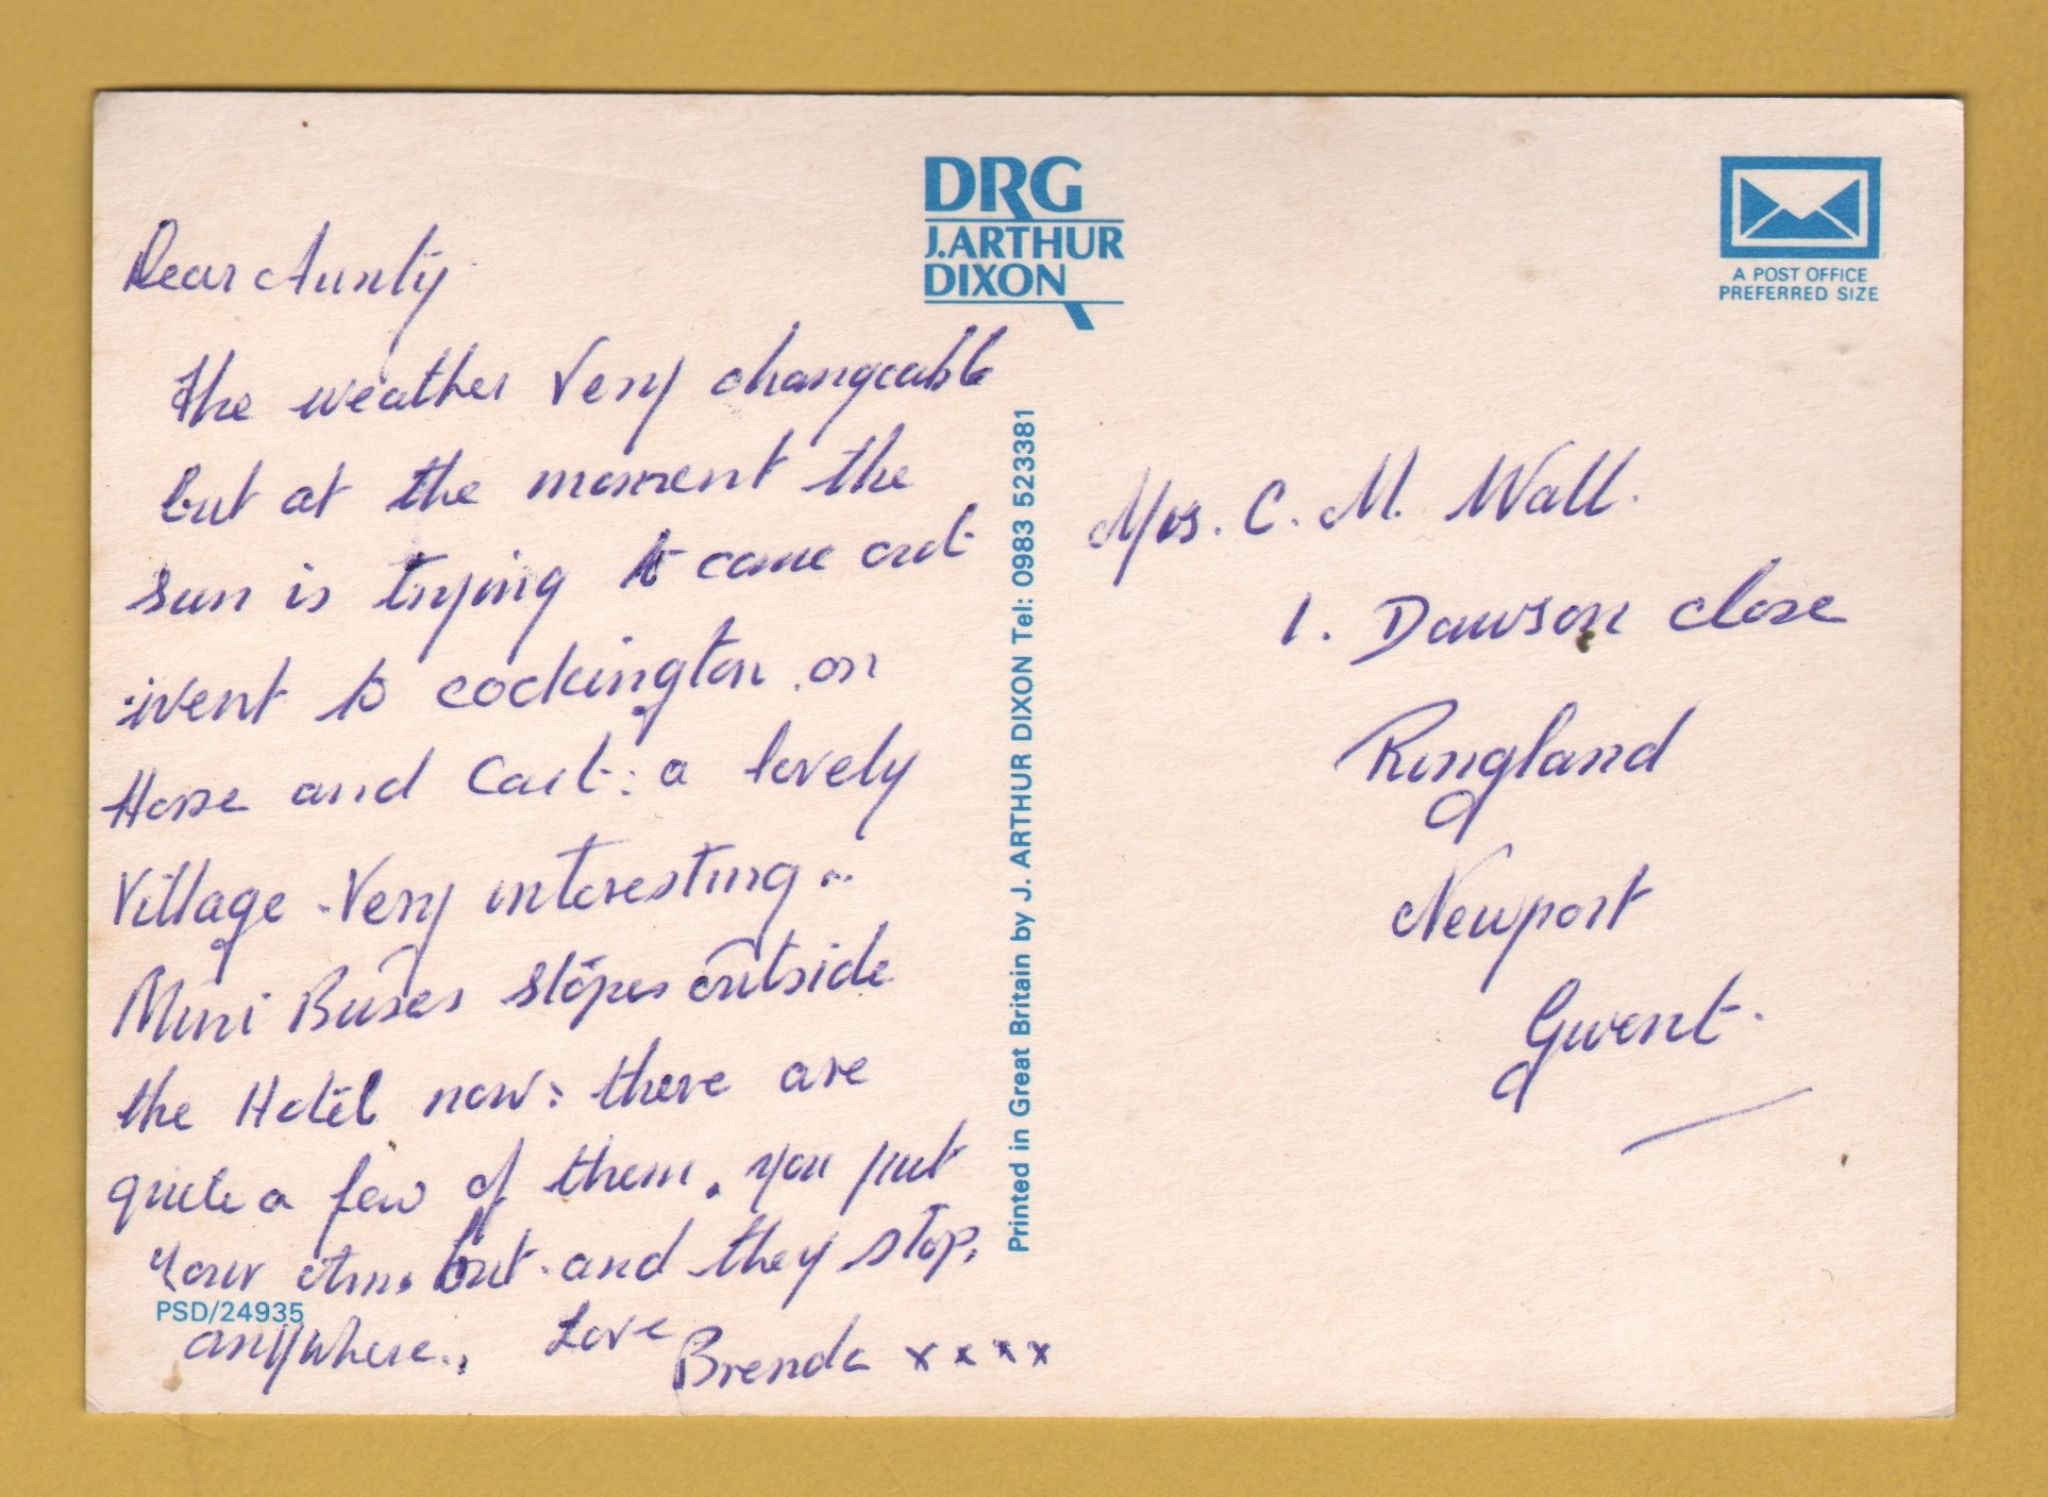 Dear Aunty
the weather very changeable
but at the moment the
sun is trying to come out
went to cockington on
Horse and Cart: a lovely
Village - Very interesting..
Mini Buses stopes outside
the Hotel now: there are
quite a few of them. you put
your arm out and they stop,
anywhere.. Love Brenda x x x x
PSD/24935
DRG
J.ARTHUR
DIXON
Printed in Great Britain by J. ARTHUR DIXON Tel: 0983 523381
A POST OFFICE
PREFERRED SIZE
Mrs. C. M. Wall.
1. Dawson close
Ringland
Newport
Gwent.